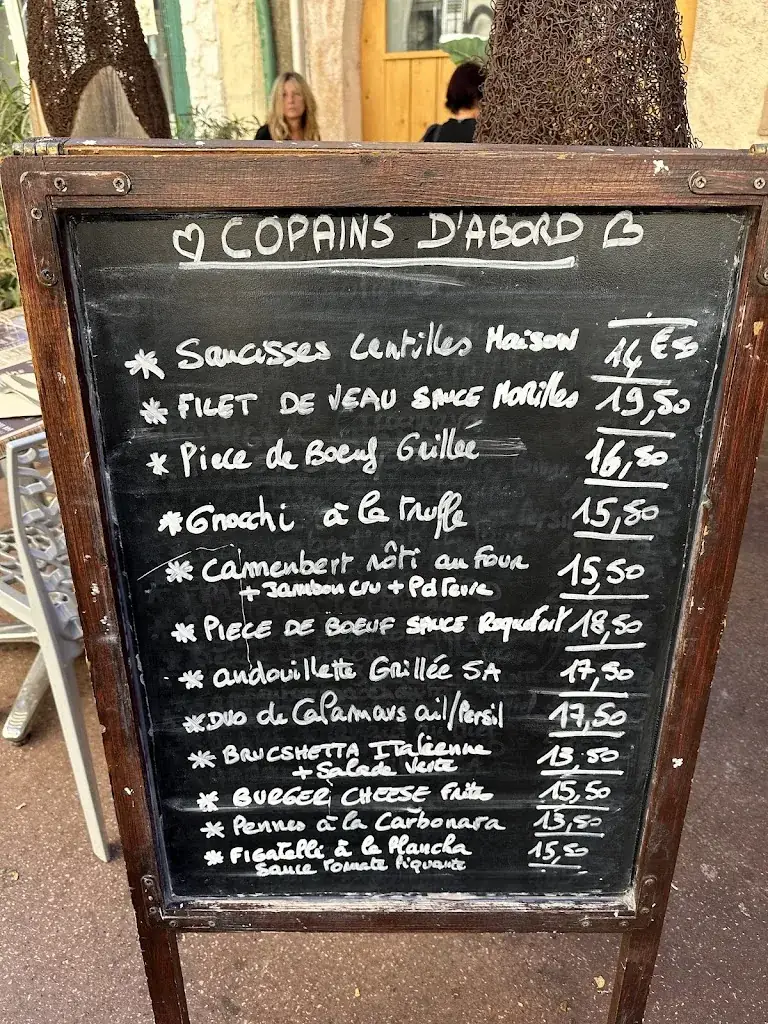 ♡ COPAINS D'ABORD ♡
* Saucisses Lentilles Maison 14€50
* FILET DE VEAU SAUCE MORILLES 19,50
* Piece de Boeuf Grillée 16,50
* Gnocchi à la truffe 15,50
* Camenbert rôti au Four 15,50
+ Jambon cru + Pd Terre
* PIECE DE BOEUF SAUCE Roquefort 18,50
* andouillette Grillée 5A 17,50
* DUO de Calamars ail/Persil 17,50
* BRUCSHETTA Italienne 13,50
+ Salade Verte
* BURGER CHEESE Frites 15,50
* Pennes à la Carbonara 13,50
* FIGATELLI à la Plancha 15,50
Sauce Tomate Piquante